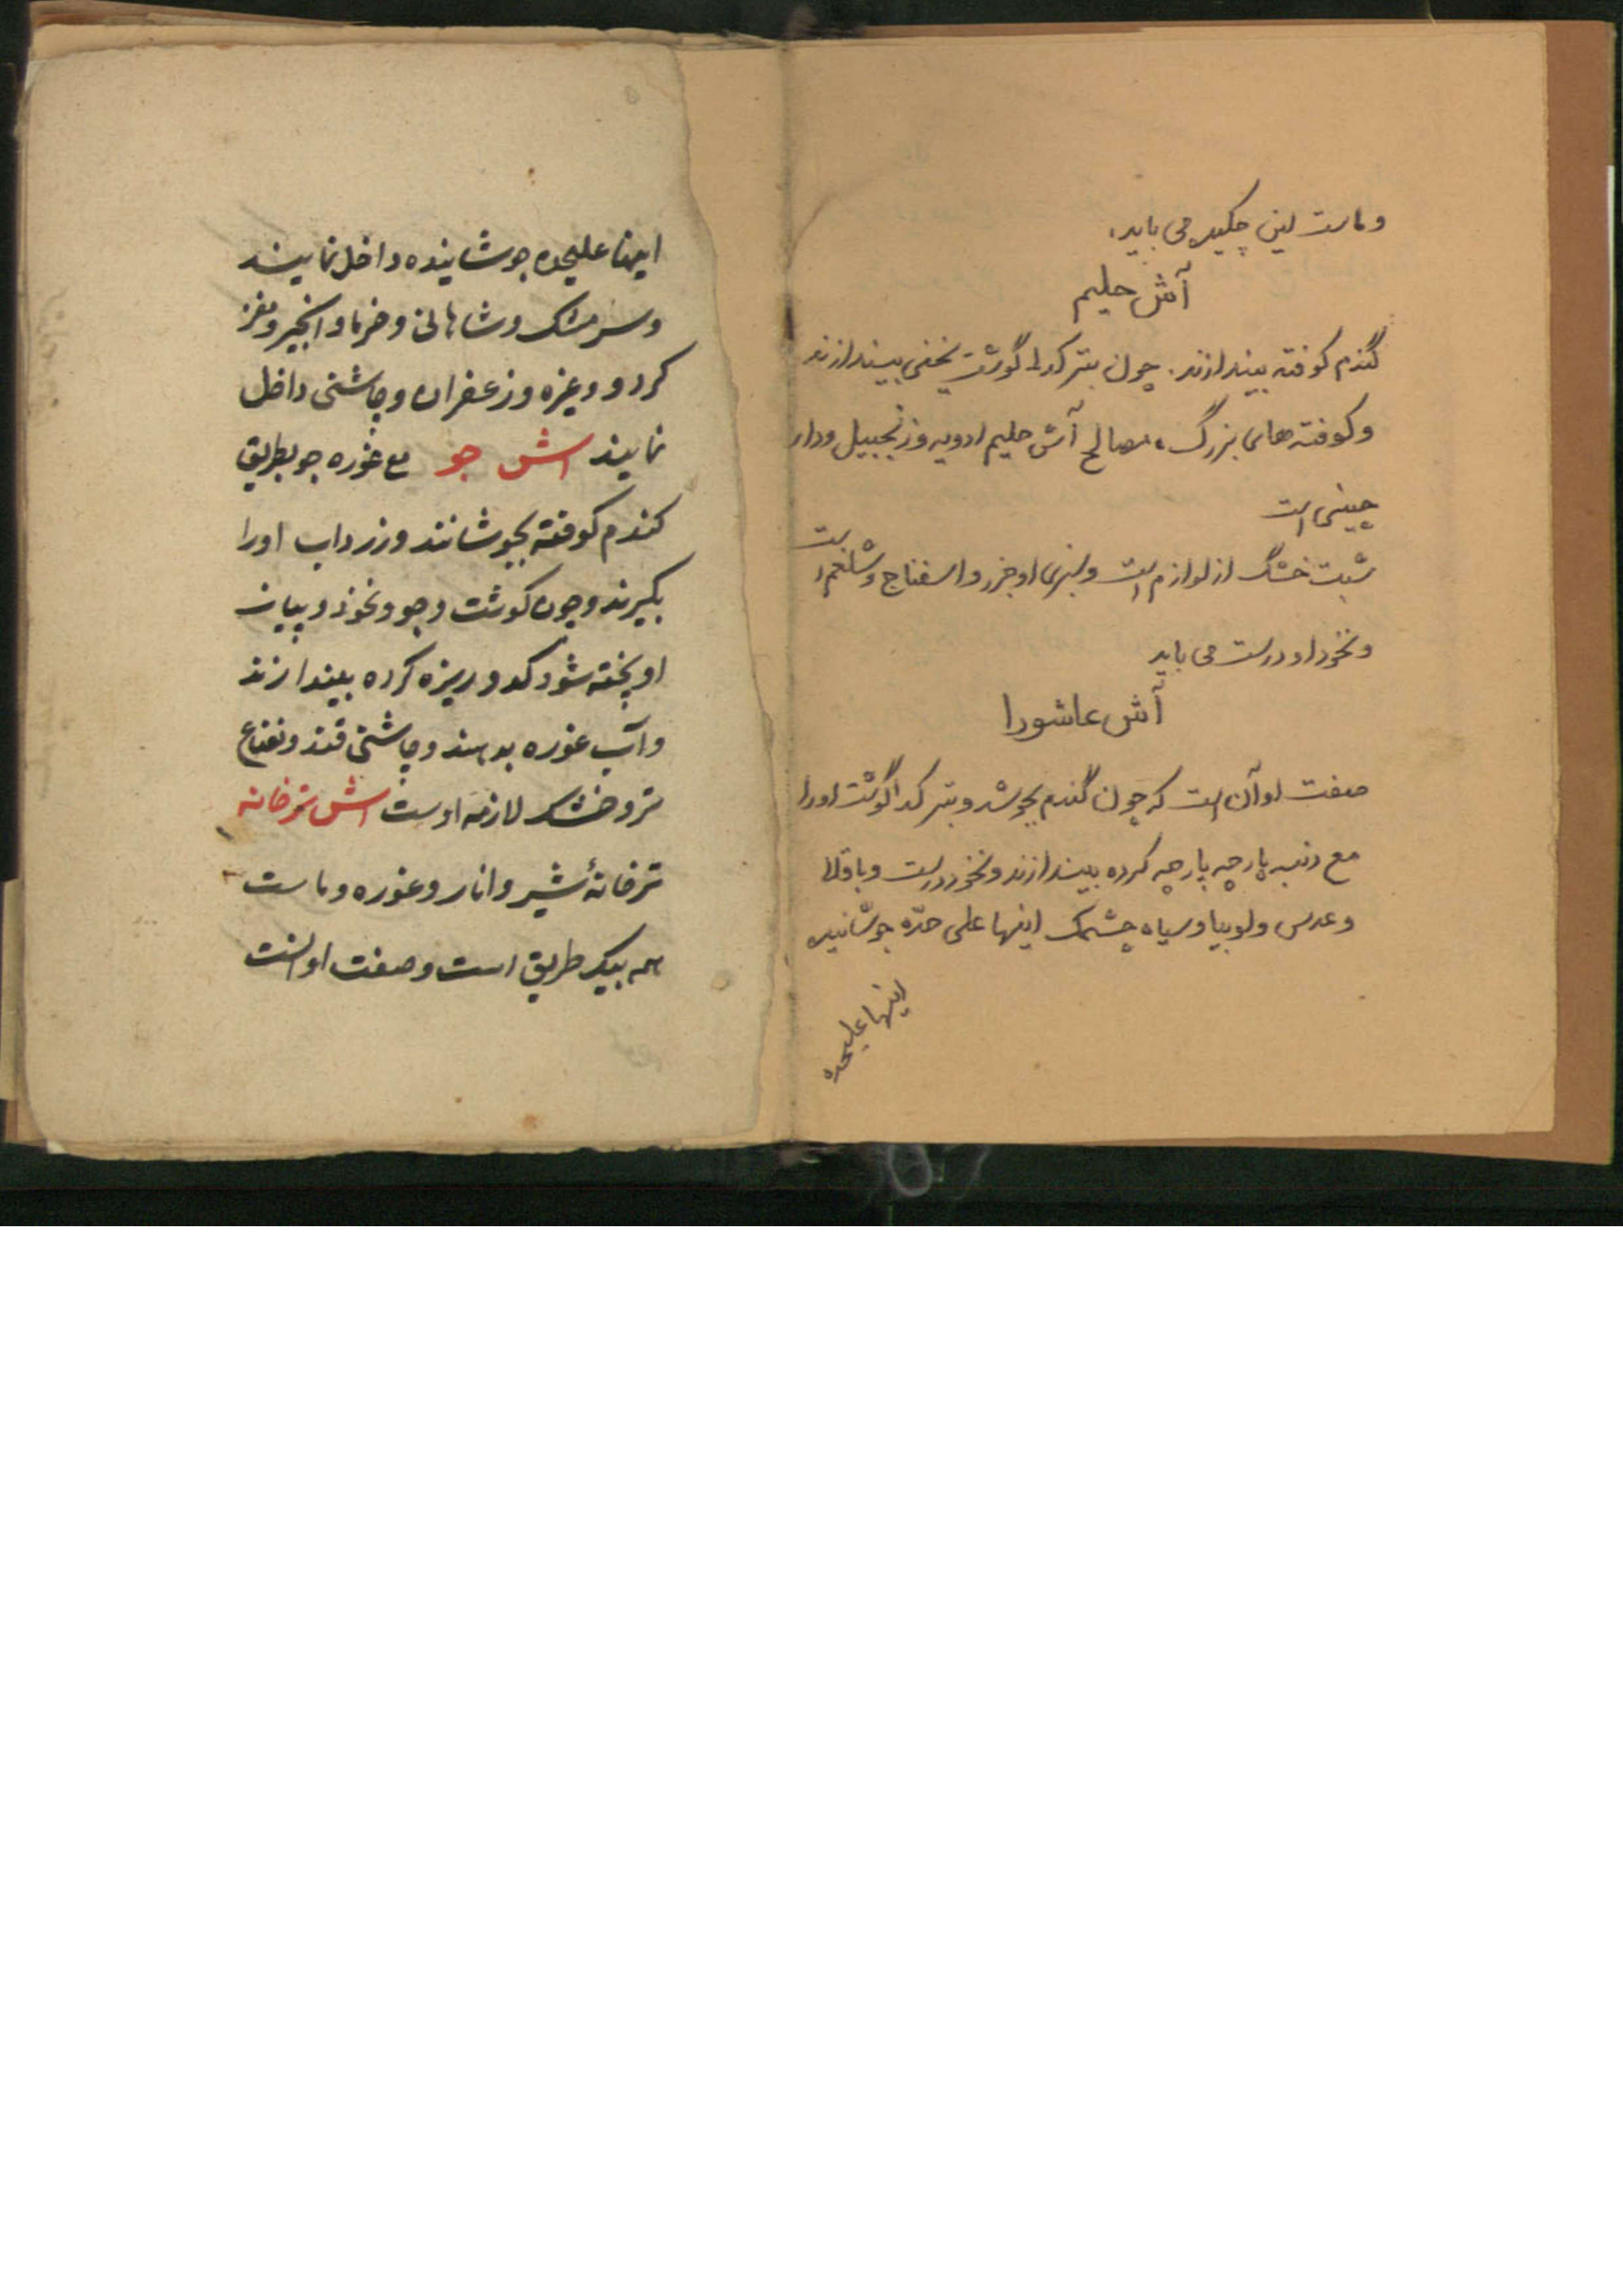 و ماست لین چکیده می باید،
آش حلیم
گندم کوفته بیندازند. چون بترکد گوشت یخنی بیندازند
و کوفته های بزرگ، مصالح آش حلیم ادویه و زنجبیل و دار
چینی است
شبت خشک از لوازم است و سبزی او جزر و اسفناج و شلغم است
و نخود او درست می باید
آش عاشورا
صفت او آن است که چون گندم بجوشد و بترکد گوشت او را
مع دنبه پارچه پارچه کرده بیندازند و نخود درست و باقلا
و عدس و لوبیا و سیاه چشمک اینها علی حدّه جوشانیده
اینها علیحده
اینها علیحده جوشاینده داخل نمایند
و سرمشک و شاهانی و خرما و انجیر و مغز
کردو و غیره و زعفران و چاشنی داخل
نمایند اش جو مع غوره جو بطریق
کندم کوفته بجوشانند و زرداب اورا
بکیرند و چون کوشت و جو و نخود و پیاز
او پخته شود کدو ریزه کرده بیندازند
و آب غوره بدهند و چاشنی قند و نعناع
تر و خشک لازمه اوست اش ترخانه
ترخانهٔ شیر و انار و غوره و ماست
همه بیک طریق است و صفت او انست